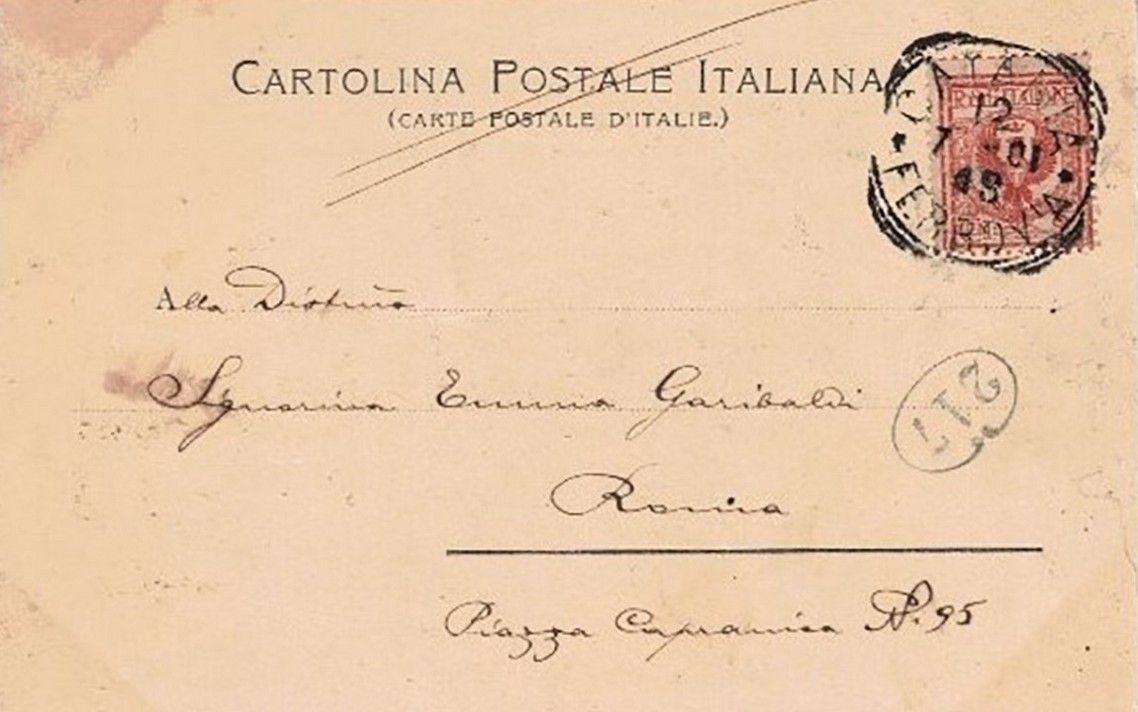 CARTOLINA POSTALE ITALIANA
(CARTE POSTALE D'ITALIE.)
CATANIA
12
7 01
4S
FERROVIA
Alla Distinta
Signorina Emma Garibaldi
217
Roma
Piazza Capranica N. 95